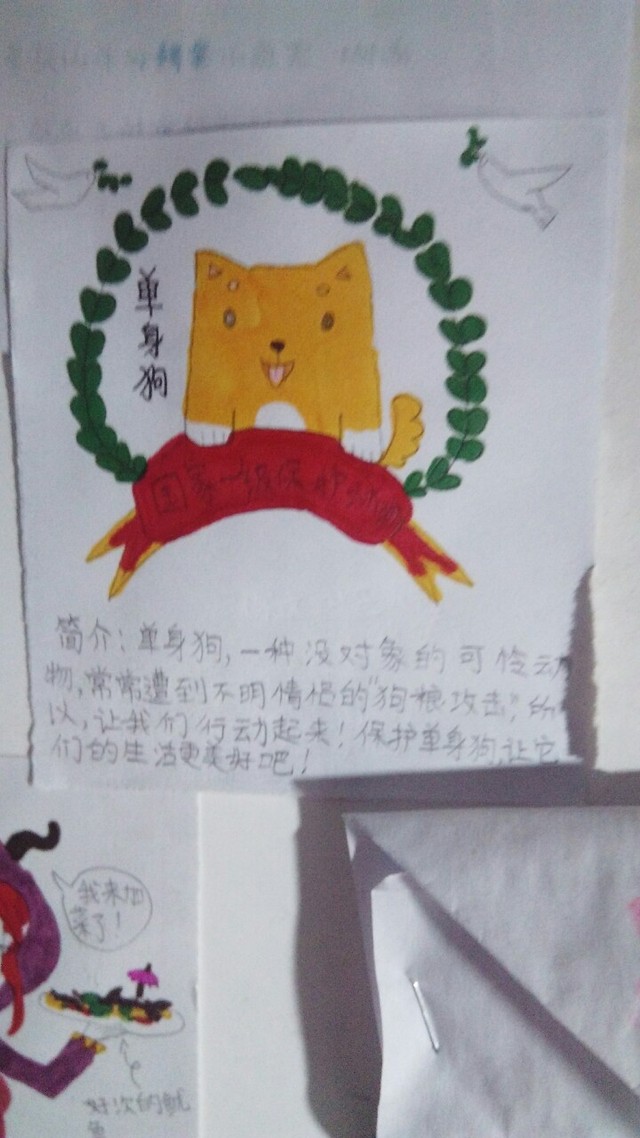 单身狗
国家一级保护动物
简介：单身狗，一种没对象的可怜动
物，常常遭到不明情侣的“狗粮攻击”，所
以，让我们行动起来！保护单身狗，让它
们的生活更美好吧！
我来加
菜了！
好次的鱿
鱼